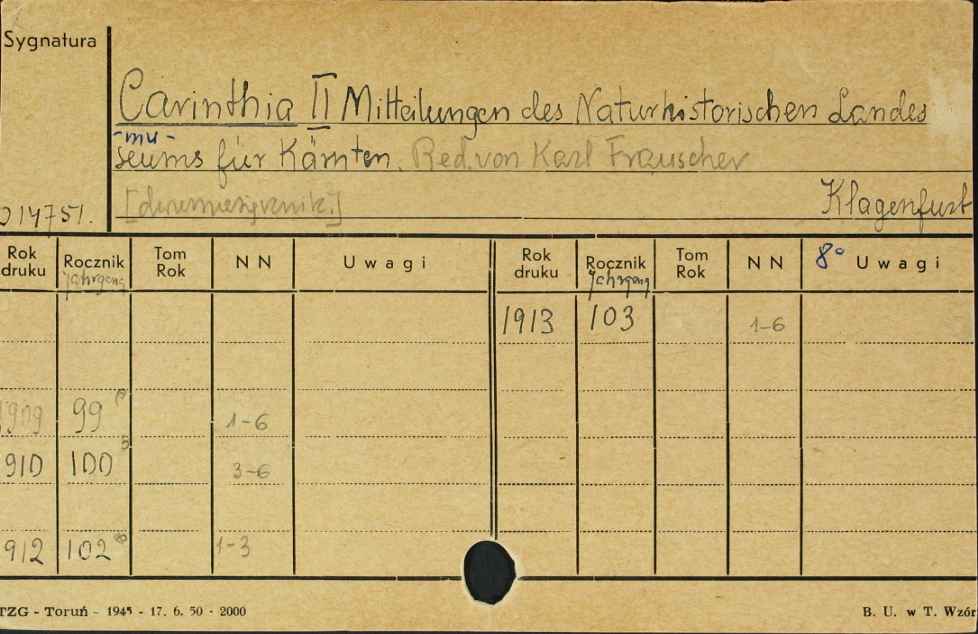 Sygnatura
Carinthia II Mitteilungen des Naturhistorischen Landes
-mu-
seums für Kärnten. Red. von Karl Frauscher
[dwumiesięcznik.] Klagenfurt
14751.
Rok druku Rocznik Jahrgang Tom Rok N N Uwagi Rok druku Rocznik Jahrgang Tom Rok N N 8° Uwagi
1913 103 1-6
1909 99 1-6
910 100 3-6
912 102 1-3
TZG - Toruń - 1945 - 17. 6. 50 - 2000 B. U. w T. Wzór